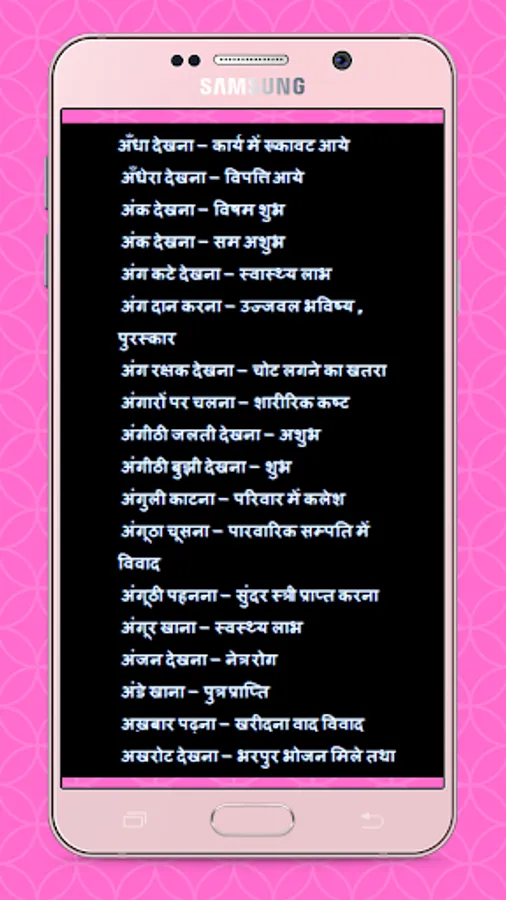 SAMSUNG
अँधा देखना – कार्य में रूकावट आये
अँधेरा देखना – विपत्ति आये
अंक देखना – विषम शुभ
अंक देखना – सम अशुभ
अंग कटे देखना – स्वास्थ्य लाभ
अंग दान करना – उज्जवल भविष्य ,
पुरस्कार
अंग रक्षक देखना – चोट लगने का खतरा
अंगारों पर चलना – शारीरिक कष्ट
अंगीठी जलती देखना – अशुभ
अंगीठी बुझी देखना – शुभ
अंगुली काटना – परिवार में कलेश
अंगूठा चूसना – पारवारिक सम्पति में
विवाद
अंगूठी पहनना – सुंदर स्त्री प्राप्त करना
अंगूर खाना – स्वस्थ्य लाभ
अंजन देखना – नेत्र रोग
अंडे खाना – पुत्र प्राप्ति
अख़बार पढ़ना – खरीदना वाद विवाद
अखरोट देखना – भरपुर भोजन मिले तथा